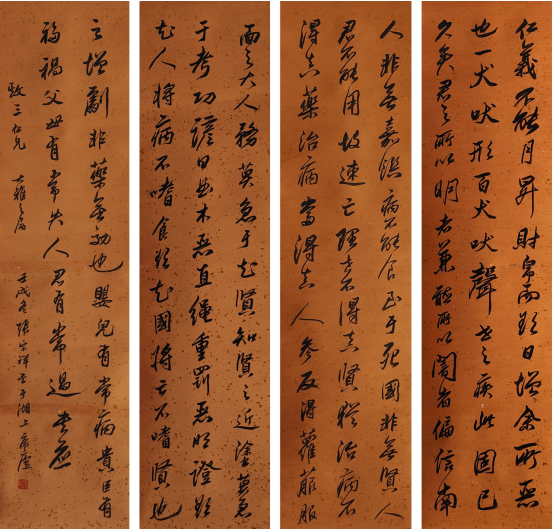 仁義不能月昇財帛而欲日增余所惡
也一犬吠形百犬吠聲世之疾此固已
久矣君之所以明者兼聽所以闇者偏信南
人非無嘉饌病不能食至于死國非無賢人
君不能用故速亡理世不得真賢猶治病不
得真藥治病當得真人參反得蘿菔服
面之大人務莫急于知賢知賢之近塗莫急
于考功諺曰曲木惡直繩重罰惡明證欲
知人將病不嗜食欲知國將亡不嗜賢也
之增劇非藥無功也嬰兒有常病貴臣有
禍父母有常失人君有常過
敬三仁兄 大雅之屬
壬戌冬張宗祥書于湖上廬